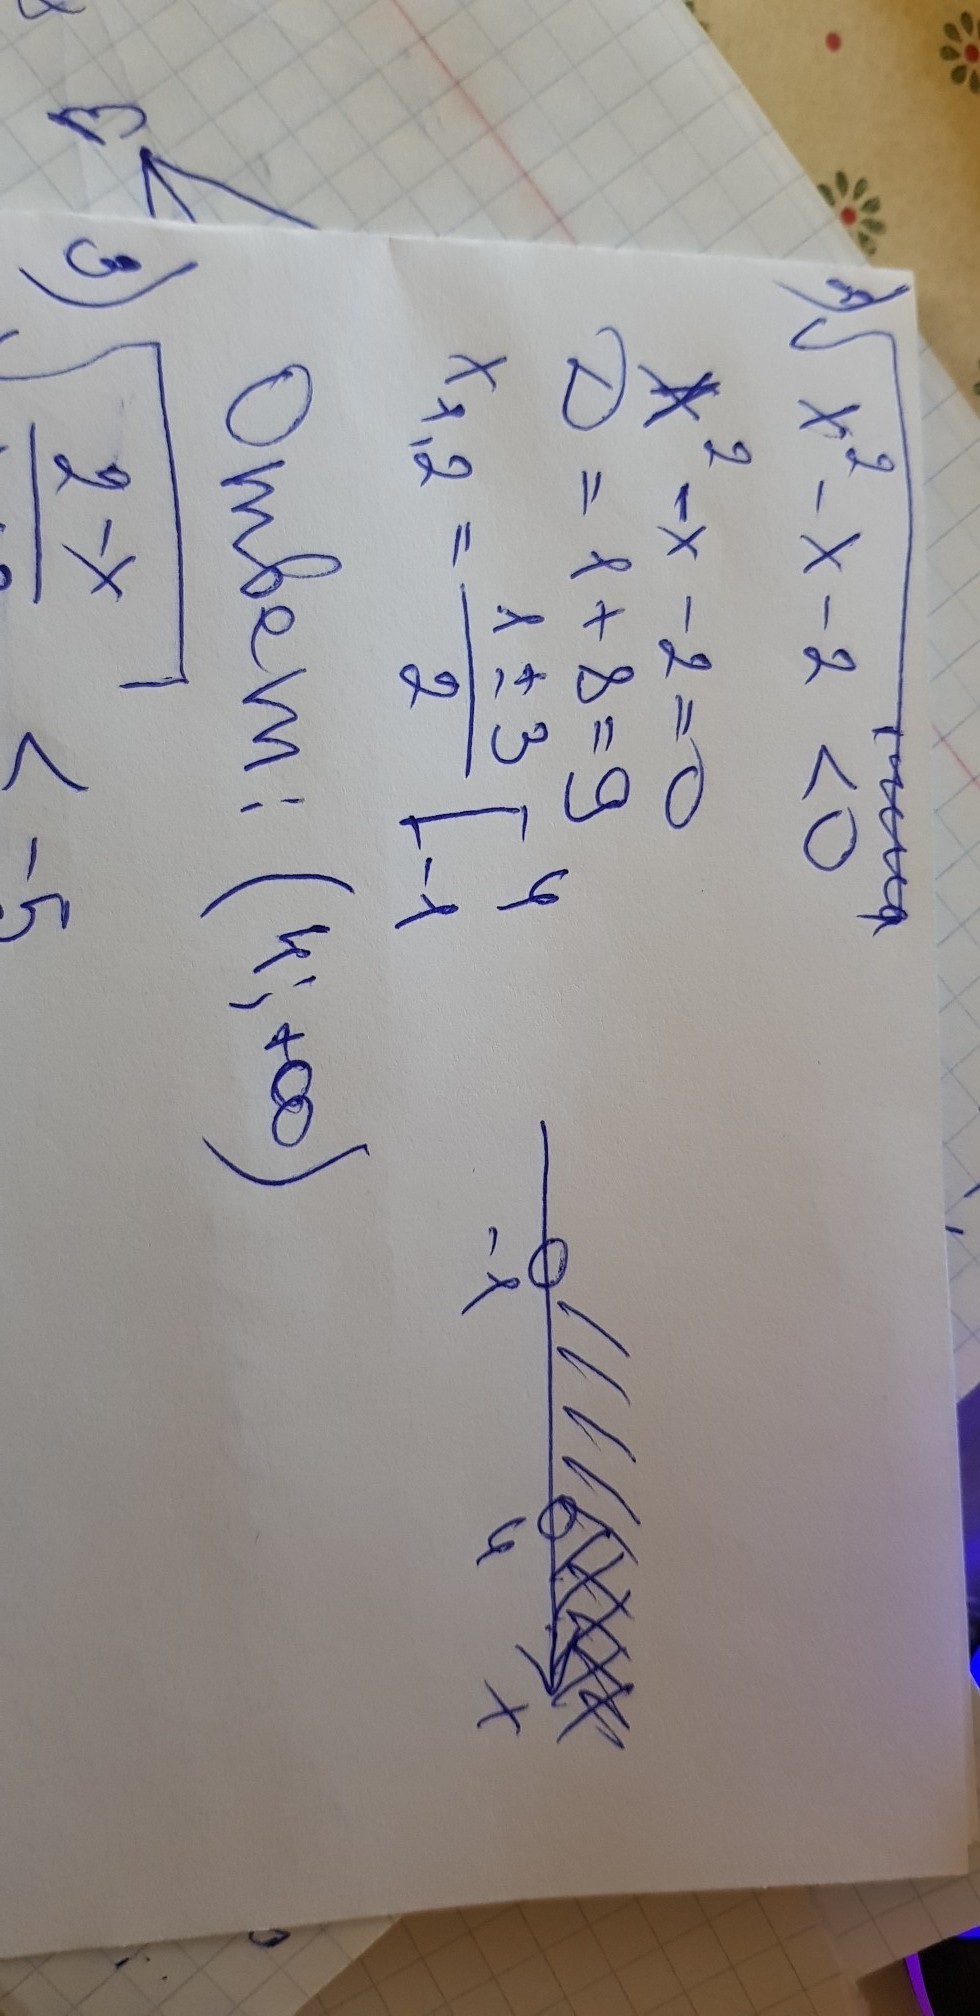 2) √x² - x - 2 < 0
x² - x - 2 = 0
D = 1 + 8 = 9
x₁,₂ = (1 ± 3)/2 [ 4 -1
-1 4 x
Ответ: (4; +∞)
3) √(2 - x) < -5